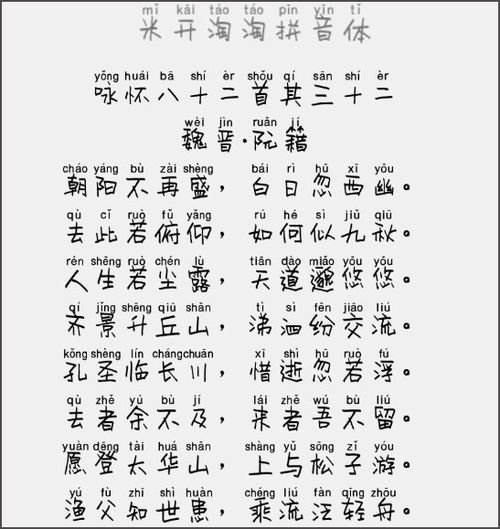 mǐ kāi táo táo pīn yīn tǐ
米开淘淘拼音体
yǒng huái bā shí èr shǒu qí sān shí èr
咏怀八十二首其三十二
wèi jìn ruǎn jí
魏晋·阮籍
cháo yáng bù zài shèng bái rì hū xī yōu
朝阳不再盛，白日忽西幽。
qù cǐ ruò fǔ yǎng rú hé sì jiǔ qiū
去此若俯仰，如何似九秋。
rén shēng ruò chén lù tiān dào miǎo yōu yōu
人生若尘露，天道邈悠悠。
qí jǐng shēng qiū shān tì sì fēn jiāo liú
齐景升丘山，涕泗纷交流。
kǒng shèng lín cháng chuān xī shì hū ruò fú
孔圣临长川，惜逝忽若浮。
qù zhě yú bù jí lái zhě wú bù liú
去者余不及，来者吾不留。
yuàn dēng tài huá shān shàng yǔ sōng zǐ yóu
愿登太华山，上与松子游。
yú fù zhī shì huàn chéng liú fàn qīng zhōu
渔父知世患，乘流泛轻舟。